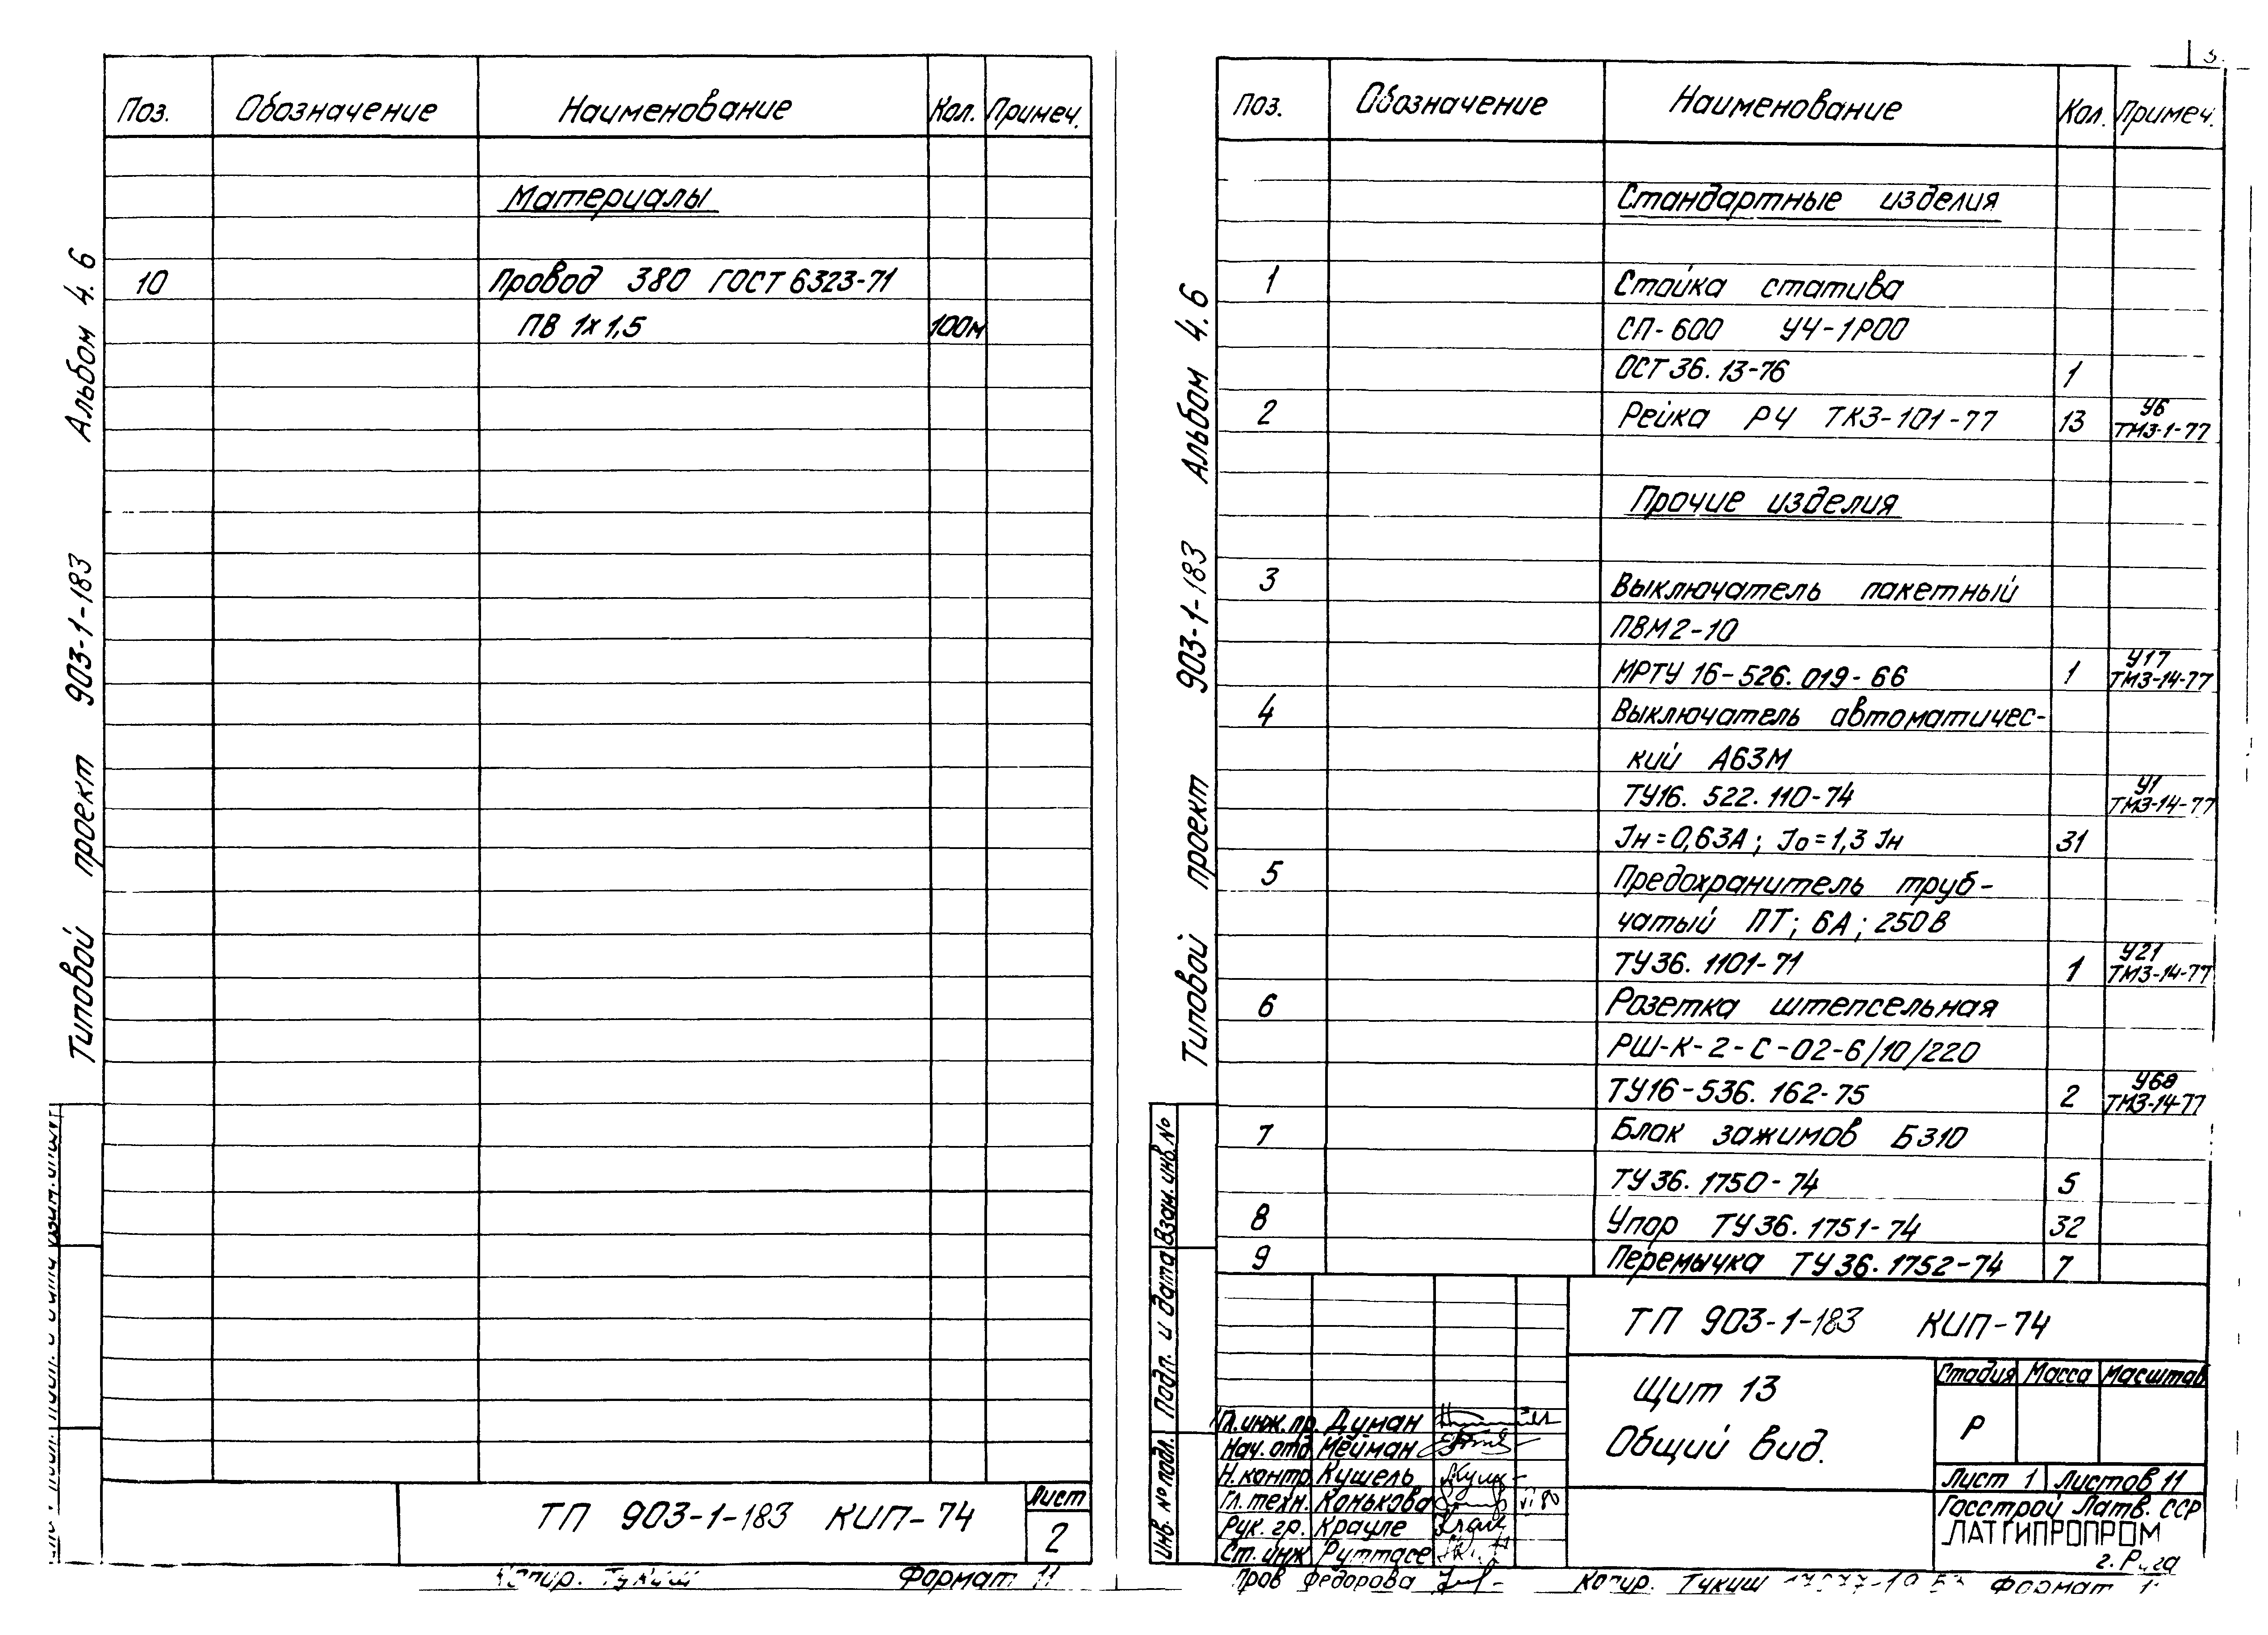 Поз. Обозначение Наименование Кол. Примеч.
Материалы
10 Провод 380 ГОСТ 6323-71
ПВ 1х1,5 100м
Типовой проект 903-1-183 Альбом 4.6
ТП 903-1-183 КИП-74
Лист
2
Копир. Тукиш Формат 11
Поз. Обозначение Наименование Кол. Примеч.
Стандартные изделия
1 Стойка статива
СП-600 УЧ-1Р00
ОСТ 36.13-76 1
2 Рейка РЧ ТКЗ-101-77 13 У6 ТМЗ-1-77
Прочие изделия
3 Выключатель пакетный
ПВМ2-10
МРТУ 16-526.019-66 1 У17 ТМЗ-14-77
4 Выключатель автоматичес-
кий А63М
ТУ16.522.110-74 У1 ТМЗ-14-77
Iн=0,63А; Iо=1,3 Iн 31
5 Предохранитель труб-
чатый ПТ; 6А; 250В
ТУ36.1101-71 1 У21 ТМЗ-14-77
6 Розетка штепсельная
РШ-К-2-С-02-6/10/220
ТУ16-536.162-75 2 ТМЗ-14-77
7 Блок зажимов Б310
ТУ36.1750-74 5
8 Упор ТУ36.1751-74 32
9 Перемычка ТУ36.1752-74 7
Типовой проект 903-1-183 Альбом 4.6
Инв. № подл. Подп. и дата Взам. инв. №
ТП 903-1-183 КИП-74
Щит 13
Общий вид.
Стадия Масса Масштаб
Р
Лист 1 Листов 11
Госстрой Латв. ССР
ЛАТГИПРОПРОМ
г. Рига
Гл. инж. пр. Думан
Нач. отд. Мейман
Н. контр. Кушель
Гл. техн. Конькова VI 80
Рук. гр. Крауле
Ст. инж Руттасе
Пров Федорова
Копир. Тукиш Формат